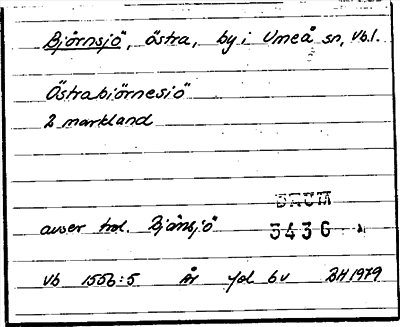 Björnsjö, östra, by i Umeå sn, Vb.l.
Östrabiörnesiö
2 markland
DAUM
avser trol. Bjänsjö 3436
Vb 1556:5 År fol 6v BH 1979